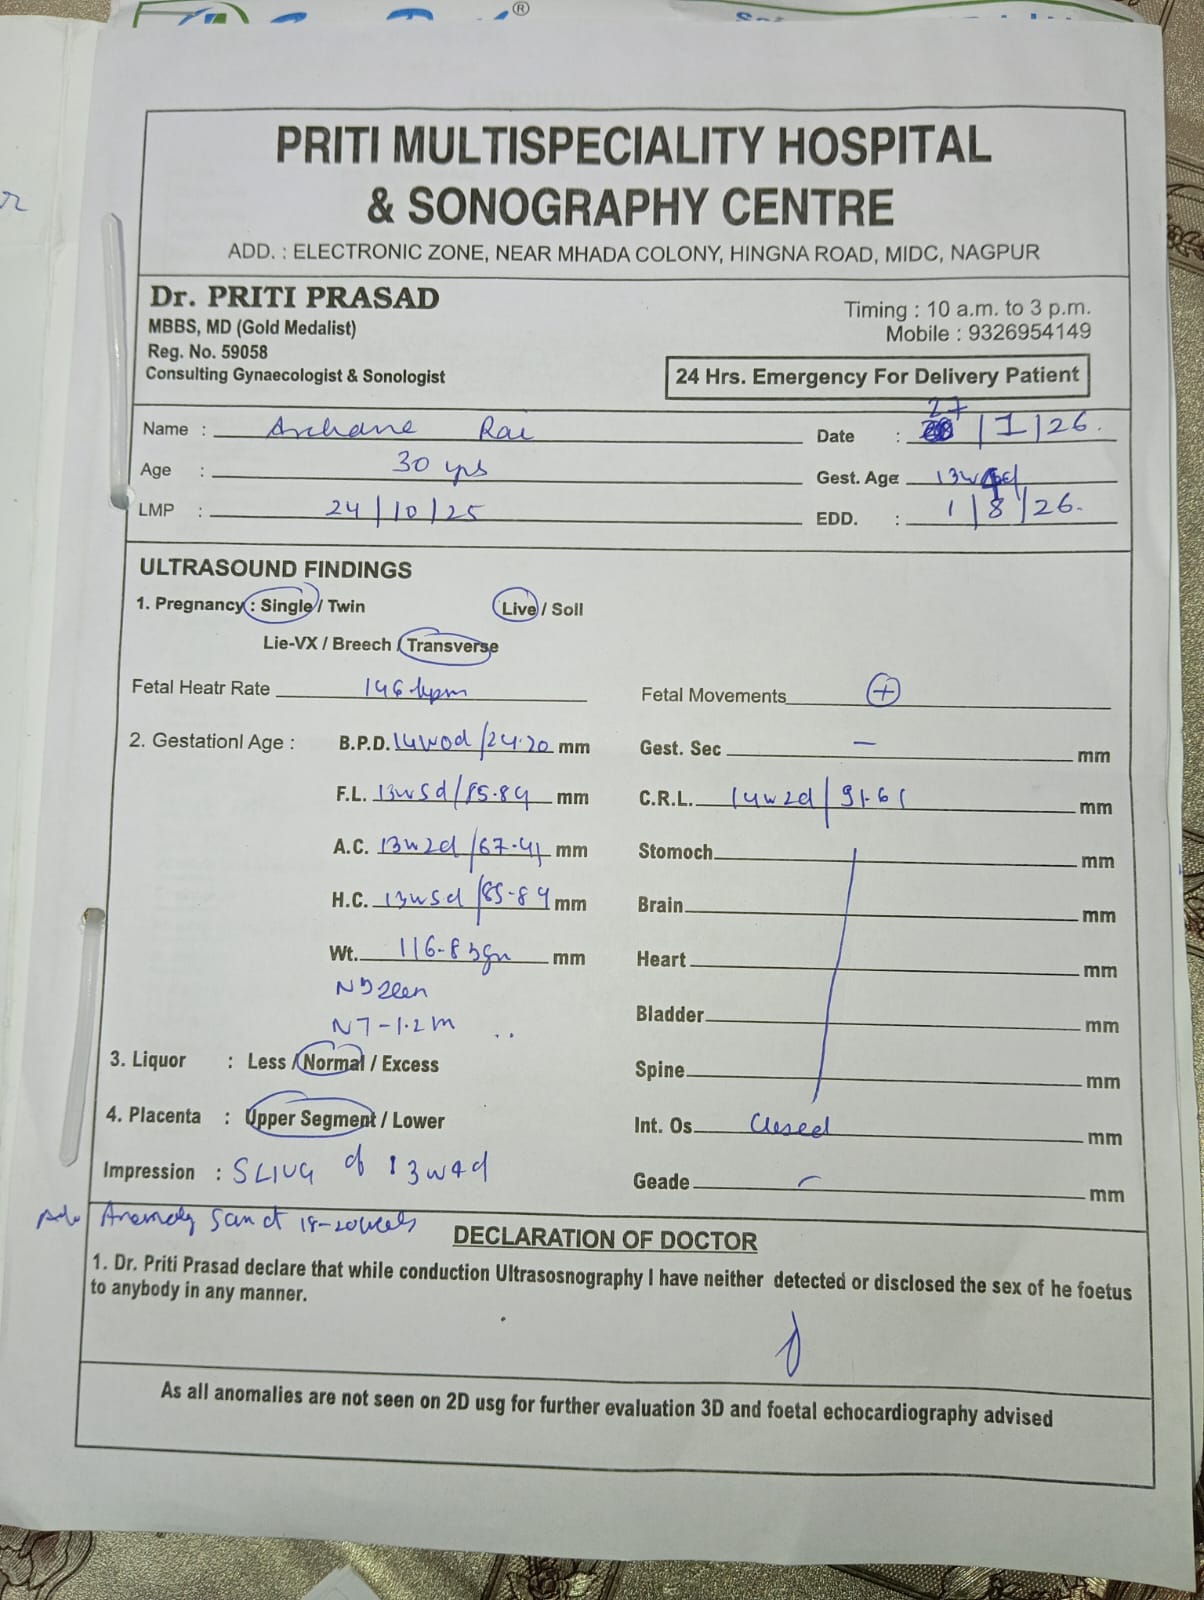 ®
PRITI MULTISPECIALITY HOSPITAL
& SONOGRAPHY CENTRE
ADD. : ELECTRONIC ZONE, NEAR MHADA COLONY, HINGNA ROAD, MIDC, NAGPUR
Dr. PRITI PRASAD
MBBS, MD (Gold Medalist)
Reg. No. 59058
Consulting Gynaecologist & Sonologist
Timing : 10 a.m. to 3 p.m.
Mobile : 9326954149
24 Hrs. Emergency For Delivery Patient
Name : Archana Rai
Date : 27/1/26.
Age : 30 yrs
Gest. Age 13w4d
LMP : 24/10/25
EDD. : 1/8/26.
ULTRASOUND FINDINGS
1. Pregnancy : Single / Twin Live / Soll
Lie-VX / Breech / Transverse
Fetal Heatr Rate 146 bpm Fetal Movements +
2. Gestationl Age : B.P.D. 14w0d/24.20 mm Gest. Sec — mm
F.L. 13w5d/85.89 mm C.R.L. 14w2d/91.61 mm
A.C. 13w2d/67.41 mm Stomoch mm
H.C. 13w5d/85.89 mm Brain mm
Wt. 116.83gm mm Heart mm
NB seen
Bladder mm
NT-1.2m
3. Liquor : Less / Normal / Excess Spine mm
4. Placenta : Upper Segment / Lower Int. Os Closed mm
Impression : SLIUG of 13w4d Geade – mm
Adv Anomaly Scan at 18-20weeks
DECLARATION OF DOCTOR
1. Dr. Priti Prasad declare that while conduction Ultrasosnography I have neither detected or disclosed the sex of he foetus
to anybody in any manner.
As all anomalies are not seen on 2D usg for further evaluation 3D and foetal echocardiography advised